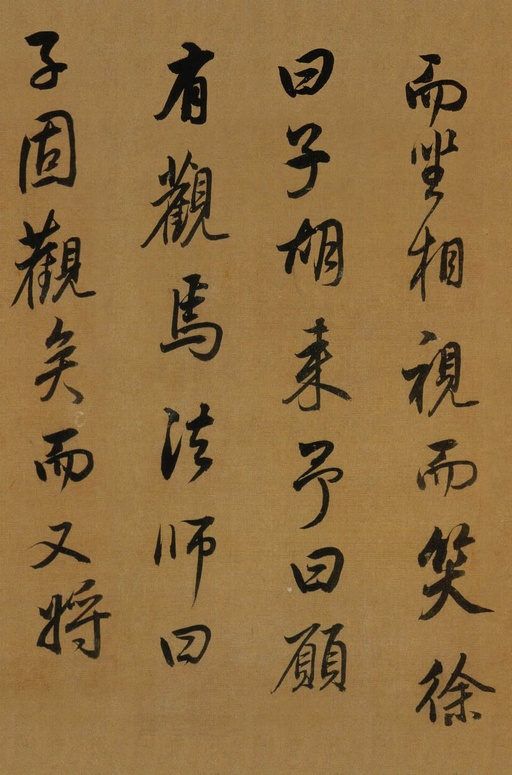 而坐相視而笑徐
曰子胡来予曰願
有觀焉法师曰
子固觀矣而又将